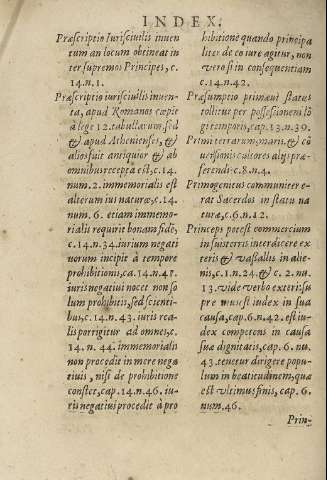 INDEX.
Præscriptio Iurisciuilis inuen
tum an locum obtineat in
ter supremos Principes, c.
14.n.1.
Præscriptio iurisciuilis inuen
ta, apud Romanos cœpit
à lege 12. tabullarum, sed
& apud Athenienses, &
alios fuit antiquior & ab
omnibus recepta est, c. 14.
num. 2. immemorialis est
alterum ius naturæ, c. 14.
num. 6. etiam immemo-
rialis requirit bonam fidē,
c. 14.n.34. iurium negati
uorum incipit à tempore
prohibitionis, ca. 14.n.47.
iuris negatiui nocet non so
lum prohibitis, sed scienti
bus, c. 14.n.43. iuris rea-
lis porrigitur ad omnes, c.
14. n. 44. immemorialis
non procedit in mere nega
tiuis, nisi de prohibitione
constet, cap. 14.n.46. iu-
ris negatiui procedit à pro
hibitione quando principa
liter de eo iure agitur, non
vero si in consequentiam
c. 14. n. 42.
Præsumptio primæui status
tollitur per possessionem lō
gi temporis, cap. 13. n. 39.
Primi terrarum, maris, & cō
uersionis cultores alijs præ-
ferendi. c. 8. n. 4.
Primogenitus communiter e-
rat Sacerdos in statu na
turæ, c. 6. n. 12.
Princeps potest commercium
in suis terris interdicere ex
teris & vasallis in alie-
nis, c. 1. n. 24. & c. 2. nu.
13. vide verbo exteri. su
pre mus est iudex in sua
causa, cap. 6. n. 42. est iu-
dex competens in causa
suæ dignitatis, cap. 6. nu.
43. tenetur dirigere popu-
lum in beatitudinem, quæ
est vltimus finis, cap. 6.
num. 46.
Prin-